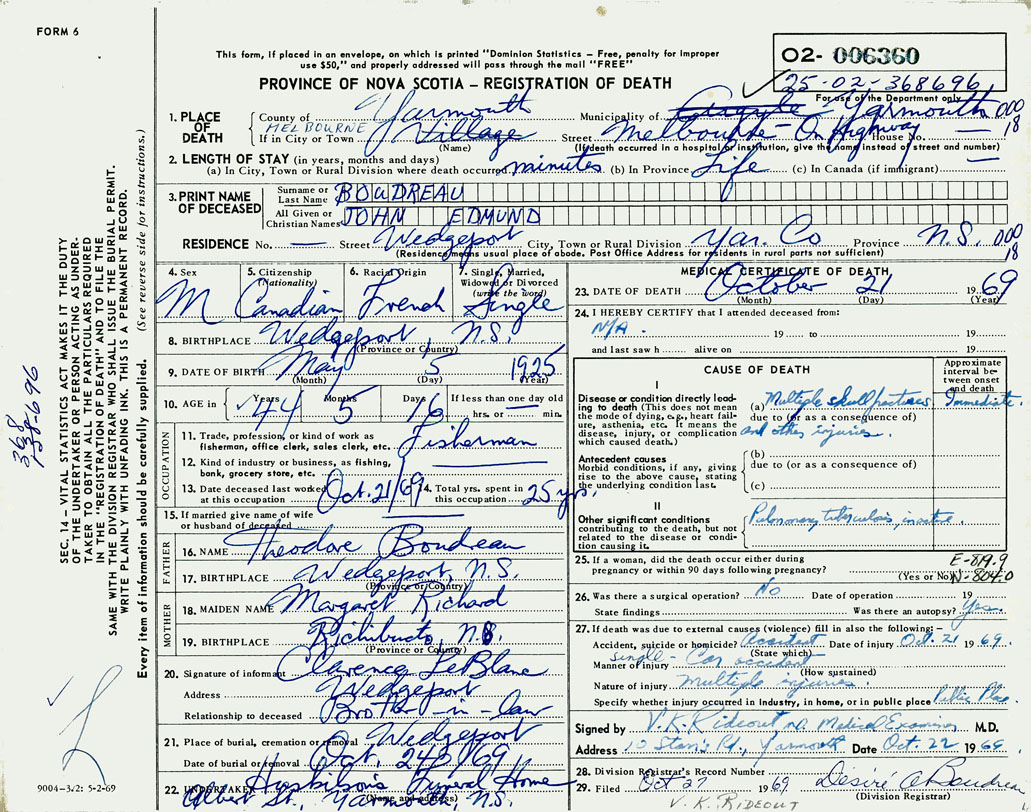 FORM 6
This form, if placed in an envelope, on which is printed "Dominion Statistics - Free, penalty for improper
use $50," and properly addressed will pass through the mail "FREE"
PROVINCE OF NOVA SCOTIA – REGISTRATION OF DEATH
O2- 006360
25-02-368696
For use of the Department only
1. PLACE OF DEATH
County of Yarmouth Municipality of Argyle Yarmouth 000
18
MELBOURNE
If in City or Town Village Street Melbourne - On Highway House No. —
(Name) (If death occurred in a hospital or institution, give the name instead of street and number)
2. LENGTH OF STAY (in years, months and days)
(a) In City, Town or Rural Division where death occurred minutes (b) In Province Life (c) In Canada (if immigrant) —
3. PRINT NAME OF DECEASED
Surname or Last Name BOUDREAU
All Given or Christian Names JOHN EDMUND
RESIDENCE No. — Street Wedgeport City, Town or Rural Division Yar. Co Province N.S. 000
18
(Residence means usual place of abode. Post Office Address for residents in rural parts not sufficient)
4. Sex 5. Citizenship (Nationality) 6. Racial Origin 7. Single, Married, Widowed or Divorced (write the word)
M Canadian French Single
8. BIRTHPLACE Wedgeport, N.S.
(Province or Country)
9. DATE OF BIRTH May 5 1925
(Month) (Day) (Year)
10. AGE in Years 44 Months 5 Days 16 If less than one day old
hrs. or — min.
OCCUPATION
11. Trade, profession, or kind of work as
fisherman, office clerk, sales clerk, etc. Fisherman
12. Kind of industry or business, as fishing,
bank, grocery store, etc. —
13. Date deceased last worked
at this occupation Oct. 21/69 14. Total yrs. spent in
this occupation 25 yrs.
15. If married give name of wife
or husband of deceased —
FATHER
16. NAME Theodore Boudreau
17. BIRTHPLACE Wedgeport, N.S.
(Province or Country)
MOTHER
18. MAIDEN NAME Margaret Richard
19. BIRTHPLACE Richibucto, N.B.
(Province or Country)
20. Signature of informant Clarence LeBlanc
Address Wedgeport
Relationship to deceased Brother-in-law
21. Place of burial, cremation or removal Wedgeport
Date of burial or removal Oct. 24/69
22. UNDERTAKER Huskilson's Funeral Home
Albert St., Yarmouth, N.S.
(Name and address)
MEDICAL CERTIFICATE OF DEATH
23. DATE OF DEATH October 21 1969
(Month) (Day) (Year)
24. I HEREBY CERTIFY that I attended deceased from:
N/A. 19 to 19
and last saw h alive on 19
CAUSE OF DEATH
Approximate interval between onset and death
I
Disease or condition directly leading to death (This does not mean
the mode of dying, e.g., heart failure, asthenia, etc. It means the
disease, injury, or complication
which caused death.)
(a) Multiple skull fractures Immediate.
due to (or as a consequence of)
and other injuries.
Antecedent causes
Morbid conditions, if any, giving
rise to the above cause, stating
the underlying condition last.
(b)
due to (or as a consequence of)
(c)
II
Other significant conditions
contributing to the death, but not
related to the disease or condition causing it.
Pulmonary tuberculosis, inactive.
25. If a woman, did the death occur either during
pregnancy or within 90 days following pregnancy? (Yes or No)
E-819.9
N-804.0
26. Was there a surgical operation? No Date of operation 19
State findings Was there an autopsy? Yes.
27. If death was due to external causes (violence) fill in also the following:-
Accident, suicide or homicide? Accident Date of injury Oct. 21 1969.
(State which)
Manner of injury Single - Car accident
(How sustained)
Nature of injury Multiple injuries.
Specify whether injury occurred in industry, in home, or in public place Public Place.
Signed by V.K. Rideout M.D. Medical Examiner M.D.
Address Yarmouth Date Oct. 22 1969
28. Division Registrar's Record Number
29. Filed Oct 27 1969 Désiré A Boudreau
(Division Registrar)
V. K. RIDEOUT
SEC. 14 – VITAL STATISTICS ACT MAKES IT THE DUTY
OF THE UNDERTAKER OR PERSON ACTING AS UNDERTAKER TO OBTAIN ALL THE PARTICULARS REQUIRED
IN THE "REGISTRATION OF DEATH" AND TO FILE THE
SAME WITH THE DIVISION REGISTRAR WHO SHALL ISSUE THE BURIAL PERMIT.
WRITE PLAINLY WITH UNFADING INK. THIS IS A PERMANENT RECORD.
Every item of information should be carefully supplied. (See reverse side for instructions.)
9004-3/2: 5-2-69